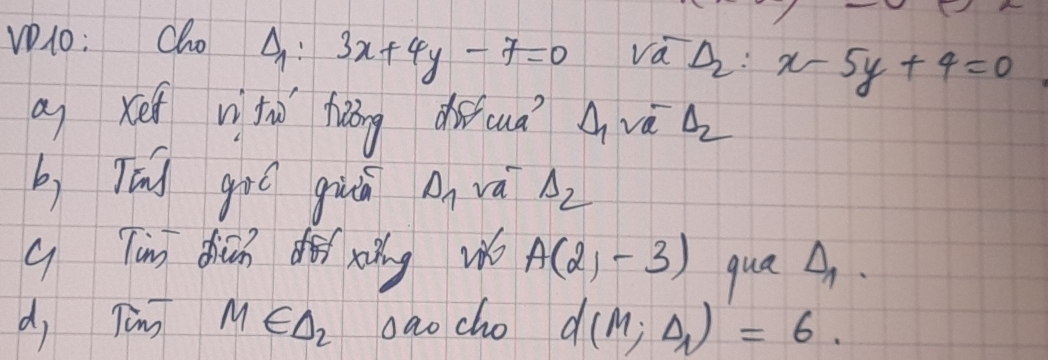 VD10: Cho Δ₁: 3x+4y - 7=0 và Δ₂: x-5y+4=0
a) Xét vị trí tương đối của Δ₁ và Δ₂
b) Tính góc giữa Δ₁ và Δ₂
c) Tìm điểm đối xứng với A(2;-3) qua Δ₁.
d) Tìm M ∈ Δ₂ sao cho d(M; Δ₁) = 6.